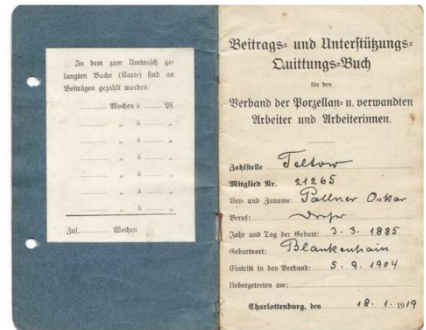 In dem zum Umtausch ge-
langten Buche (Karte) sind an
Beiträgen gezahlt worden:
Wochen à Pf.
„ à „
„ à „
„ à „
„ à „
„ à „
„ à „
Zus. Wochen
Beitrags- und Unterstützungs-
Quittungs-Buch
für den
Verband der Porzellan- u. verwandten
Arbeiter und Arbeiterinnen.
Zahlstelle Teltow
Mitglied Nr. 21265
Vor- und Zuname: Pallner Oskar
Beruf: Dreher
Jahr und Tag der Geburt: 3. 3. 1885
Geburtsort: Blankenhain
Eintritt in den Verband: 5. 9. 1904
Uebergetreten am:
Charlottenburg, den 18. 1. 1919